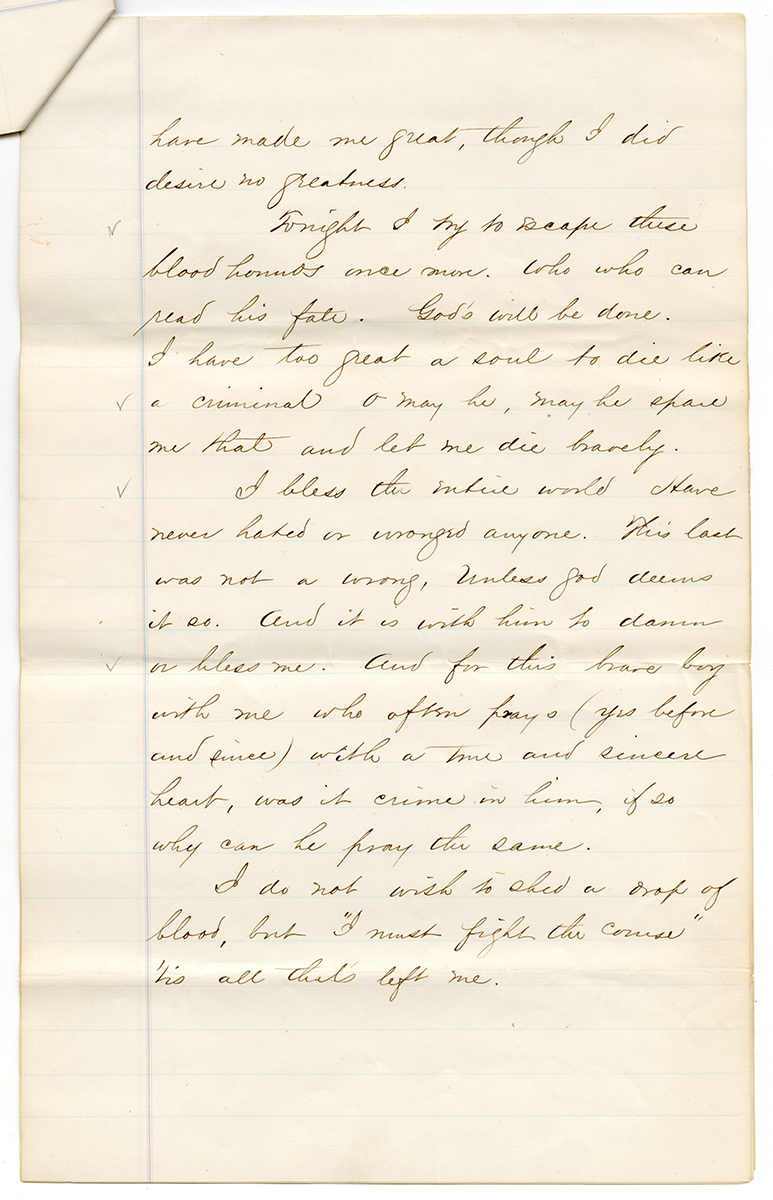 have made me great, though I did
desire no greatness.
Tonight I try to escape these
blood hounds once more. Who who can
read his fate. God's will be done.
I have too great a soul to die like
a criminal O may he, may he spare
me that and let me die bravely.
I bless the entire world Have
never hated or wronged anyone. This last
was not a wrong, Unless god deems
it so. And it is with him to damn
or bless me. And for this brave boy
with me who often prays (yes before
and since) with a true and sincere
heart, was it crime in him, if so
why can he pray the same.
I do not wish to shed a drop of
blood, but "I must fight the course"
'tis all that's left me.